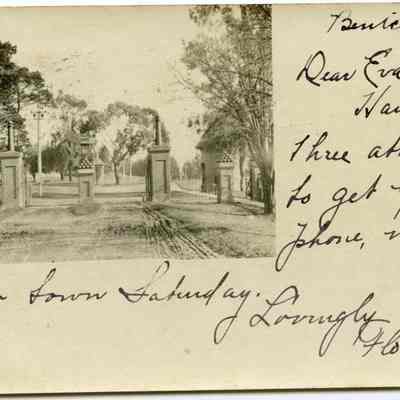 Benic
Dear Eva
Hav
Three at
to get
phone,
town Saturday.
Lovingly
Flo